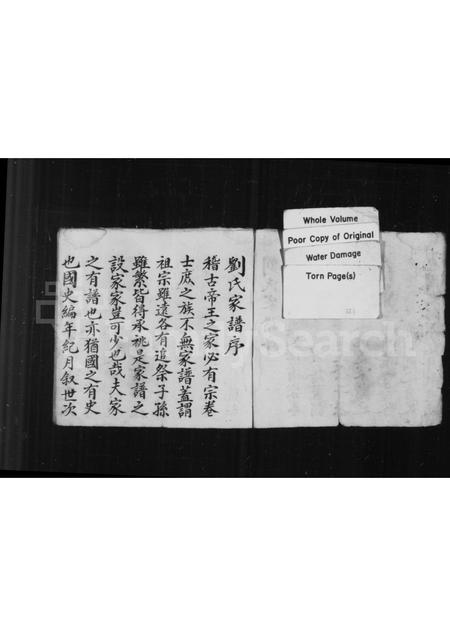 劉氏家譜序
稽古帝王之家必有宗卷
士庶之族不無家譜蓋謂
祖宗雖遠各有追祭子孫
雖繁皆得承祧是家譜之
設家家豈可少也哉夫家
之有譜也亦猶國之有史
也國史編年紀月叙世次
Whole Volume
Poor Copy of Original
Water Damage
Torn Page(s)